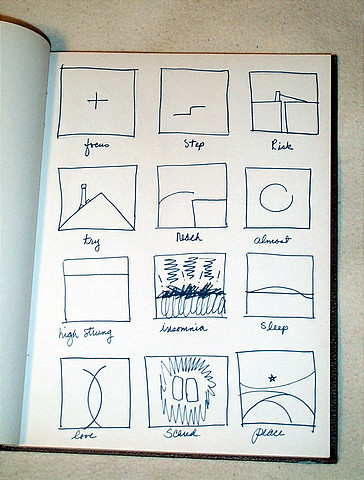 focus
Step
Risk
try
Reach
almost
high strung
insomnia
Sleep
love
Scared
peace